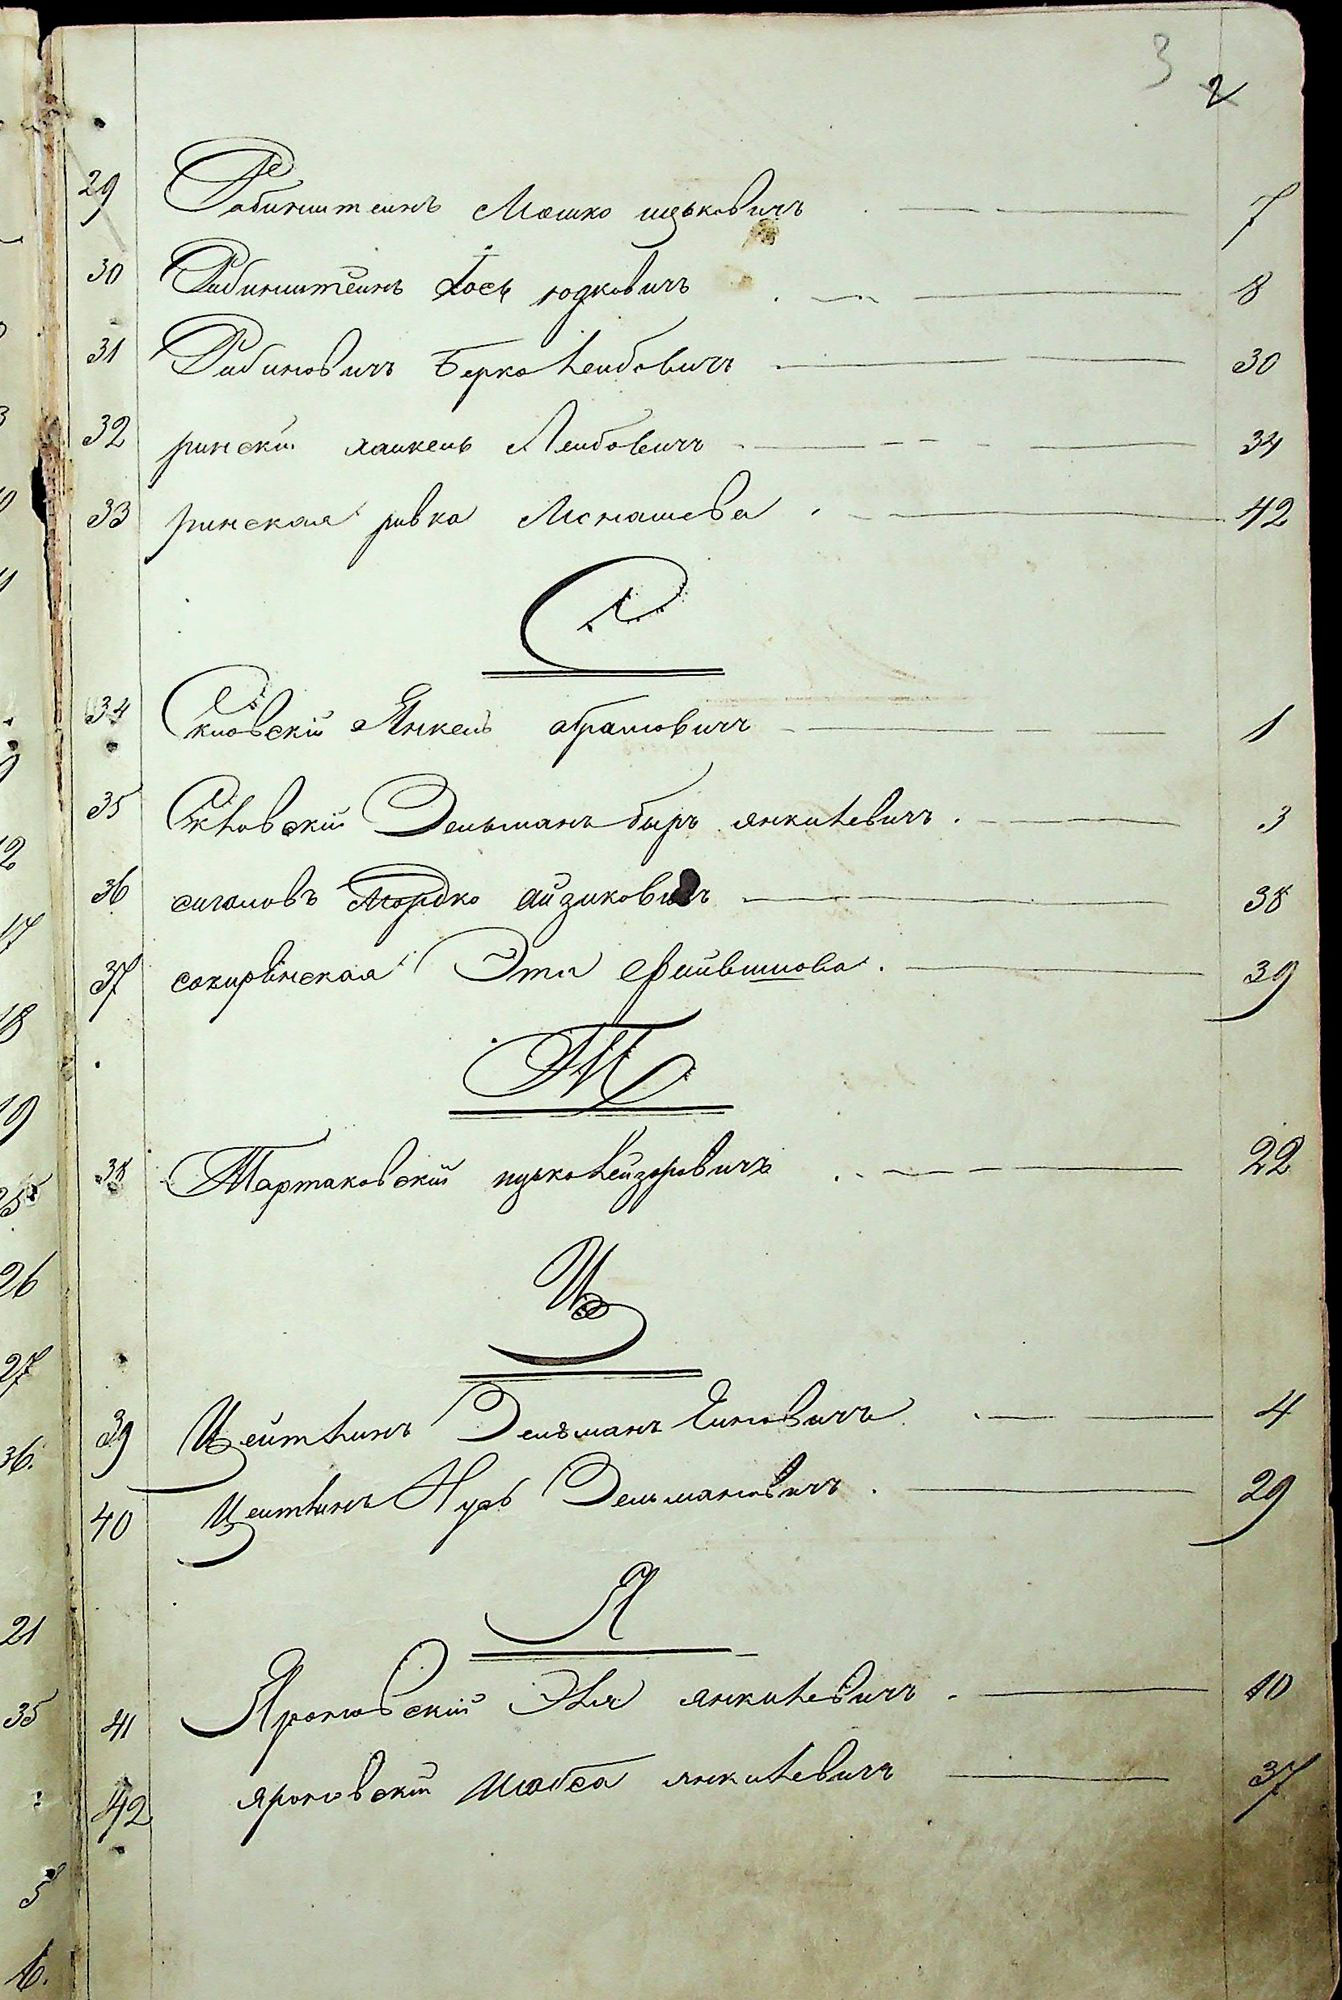 3 2
29 Рабинштеинъ Мошко ицьковичъ 7
30 Рабинштеинъ Іось юдковичъ 8
31 Рабиновичъ Берко Леибовичъ 30
32 ринскій хаикель Леибовичъ 34
33 ринская ривка Менашева 42
С
34 Скловскій Янкель абрамовичъ 1
35 Скловскій Зельман янкилевичъ 3
36 сигаловъ Мордко айзиковичъ 38
37 сокирянская Эти Фаивишова 39
Т
38 Тартаковскій ицько Леизоровичъ 22
Ц
39 Цейтлинъ Зельманъ 4
40 Цеитлинъ Нусъ Зельмановичъ 29
Я
41 Яроповскій Эля янкилевичъ 10
42 яроповскій Шабса янкилевичъ 37